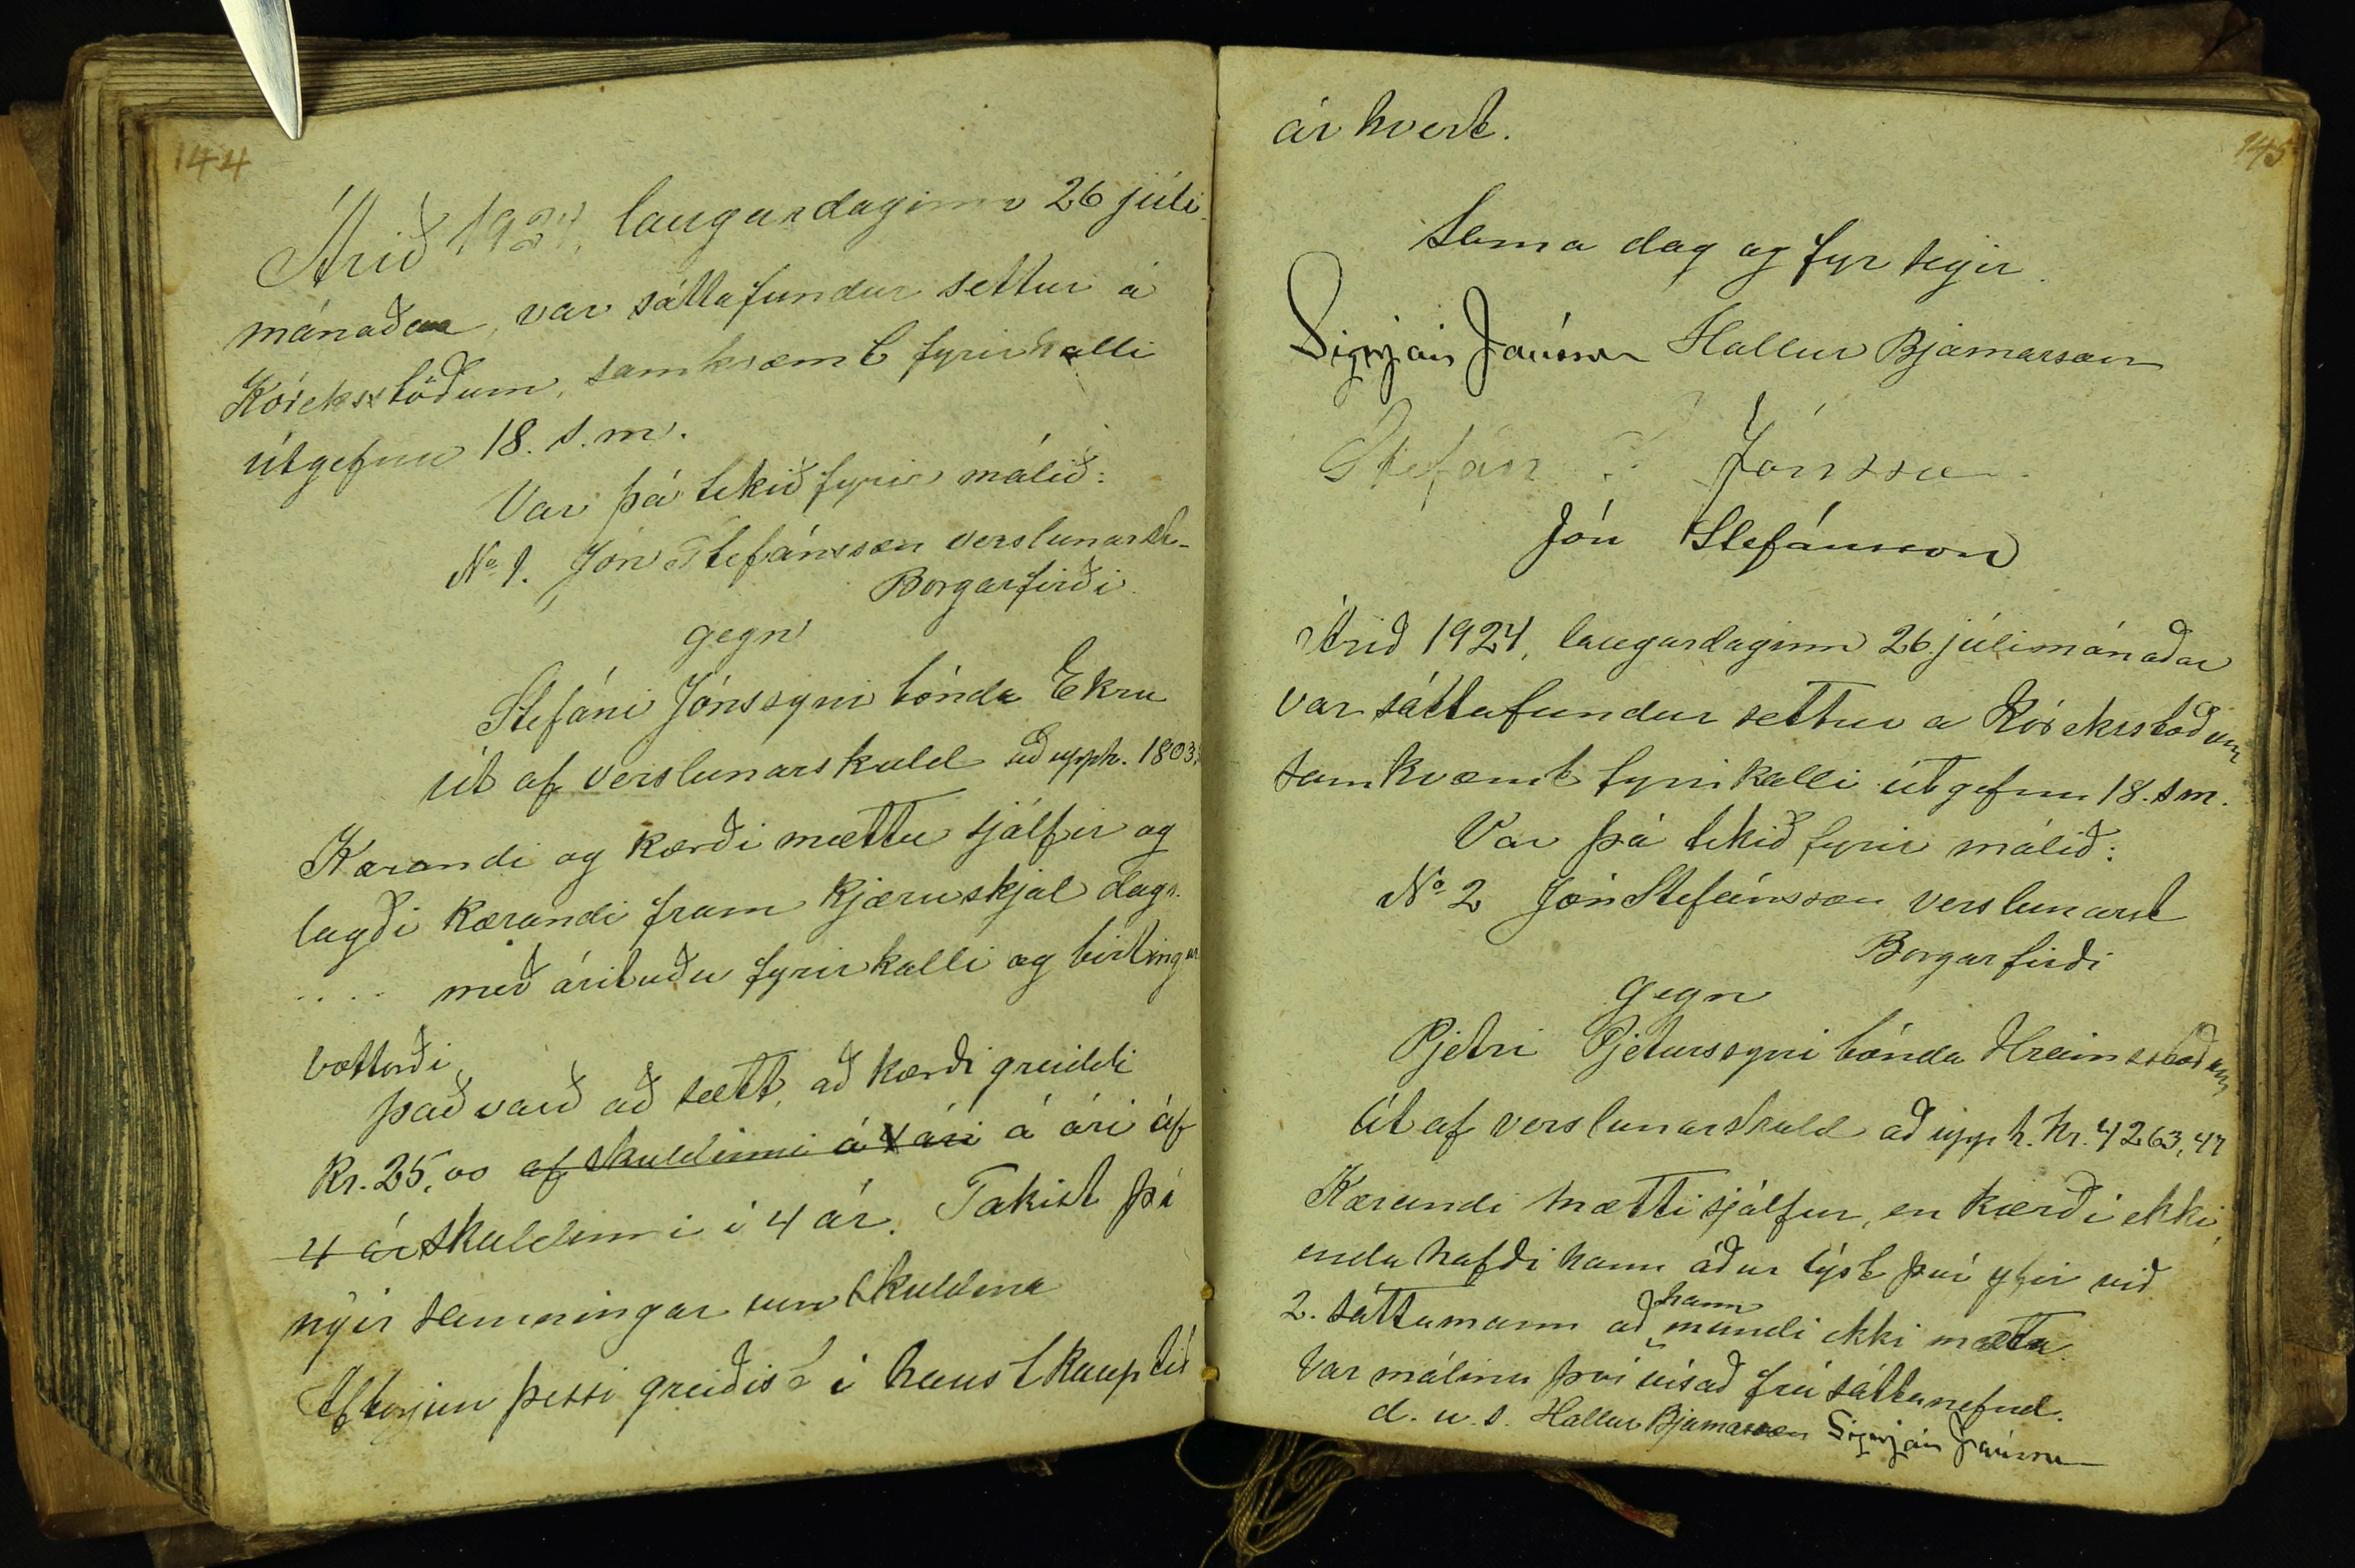 144
Árið 1924, laugardaginn 26 júlí
mánaðar, var sáttafundur settur á
Kóreksstöðum, samkvæmt fyrirkalli
útgefnu 18. s.m.
Var þá tekið fyrir málið:
No 1. Jón Stefánsson verslunarst.
Borgarfirði.
gegn
Stefáni Jónssyni bónda Ekru
út af verslunarskuld að upph. 1803,
Kærandi og kærði mættu sjálfir og
lagði kærandi fram kjæruskjal dags.
.... með árituðu fyrirkalli og birtingar
vottorði.
Það varð að sætt, að kærði greiddi
kr. 25,00 af skuldinni á 4 ári á ári af
4 ár skuldinni í 4 ár. Takist þá
nýir samningar um skuldina
Afborgun þessi greiðist í haustkauptíð
145
ár hvert.
Sama dag og fyr segir.
Sigurjón Jónsson Hallur Bjarnarson
Stefán Jónsson
Jón Stefánsson
Árið 1924, laugardaginn 26. júlímánaðar
var sáttafundur settur a Kórekstöðum
samkvæmt fyrirkalli útgefnu 18. s m.
Var þá tekið fyrir málið:
No 2 Jón Stefánsson verslunarst
Borgarfirði
gegn
Pjetri Pjeturssyni bónda Hreimsstöðum
út af verslunarskuld að upph. kr. 4263,47
Kærandi mætti sjálfur, en kærði ekki,
enda hafði hann áður lýst því yfir við
2. sáttamann að hann mundi ekki mæta.
Var málinu því vísað frá sáttanefnd.
d. u. s. Hallur Bjarnarson Sigurjón Jónsson